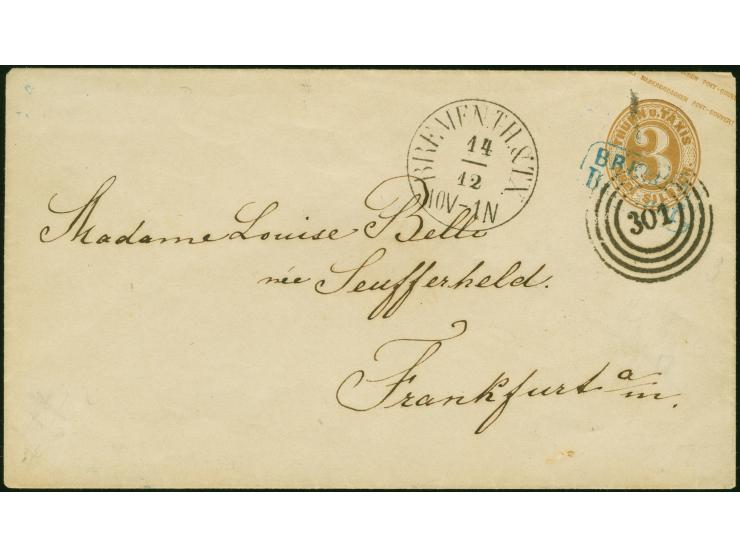 BREMEN TH. & TX.
14
12
10V-1N
THURN U. TAXIS
3
301
Madame Louise Belli
née Seufferheld.
Frankfurt a/m.